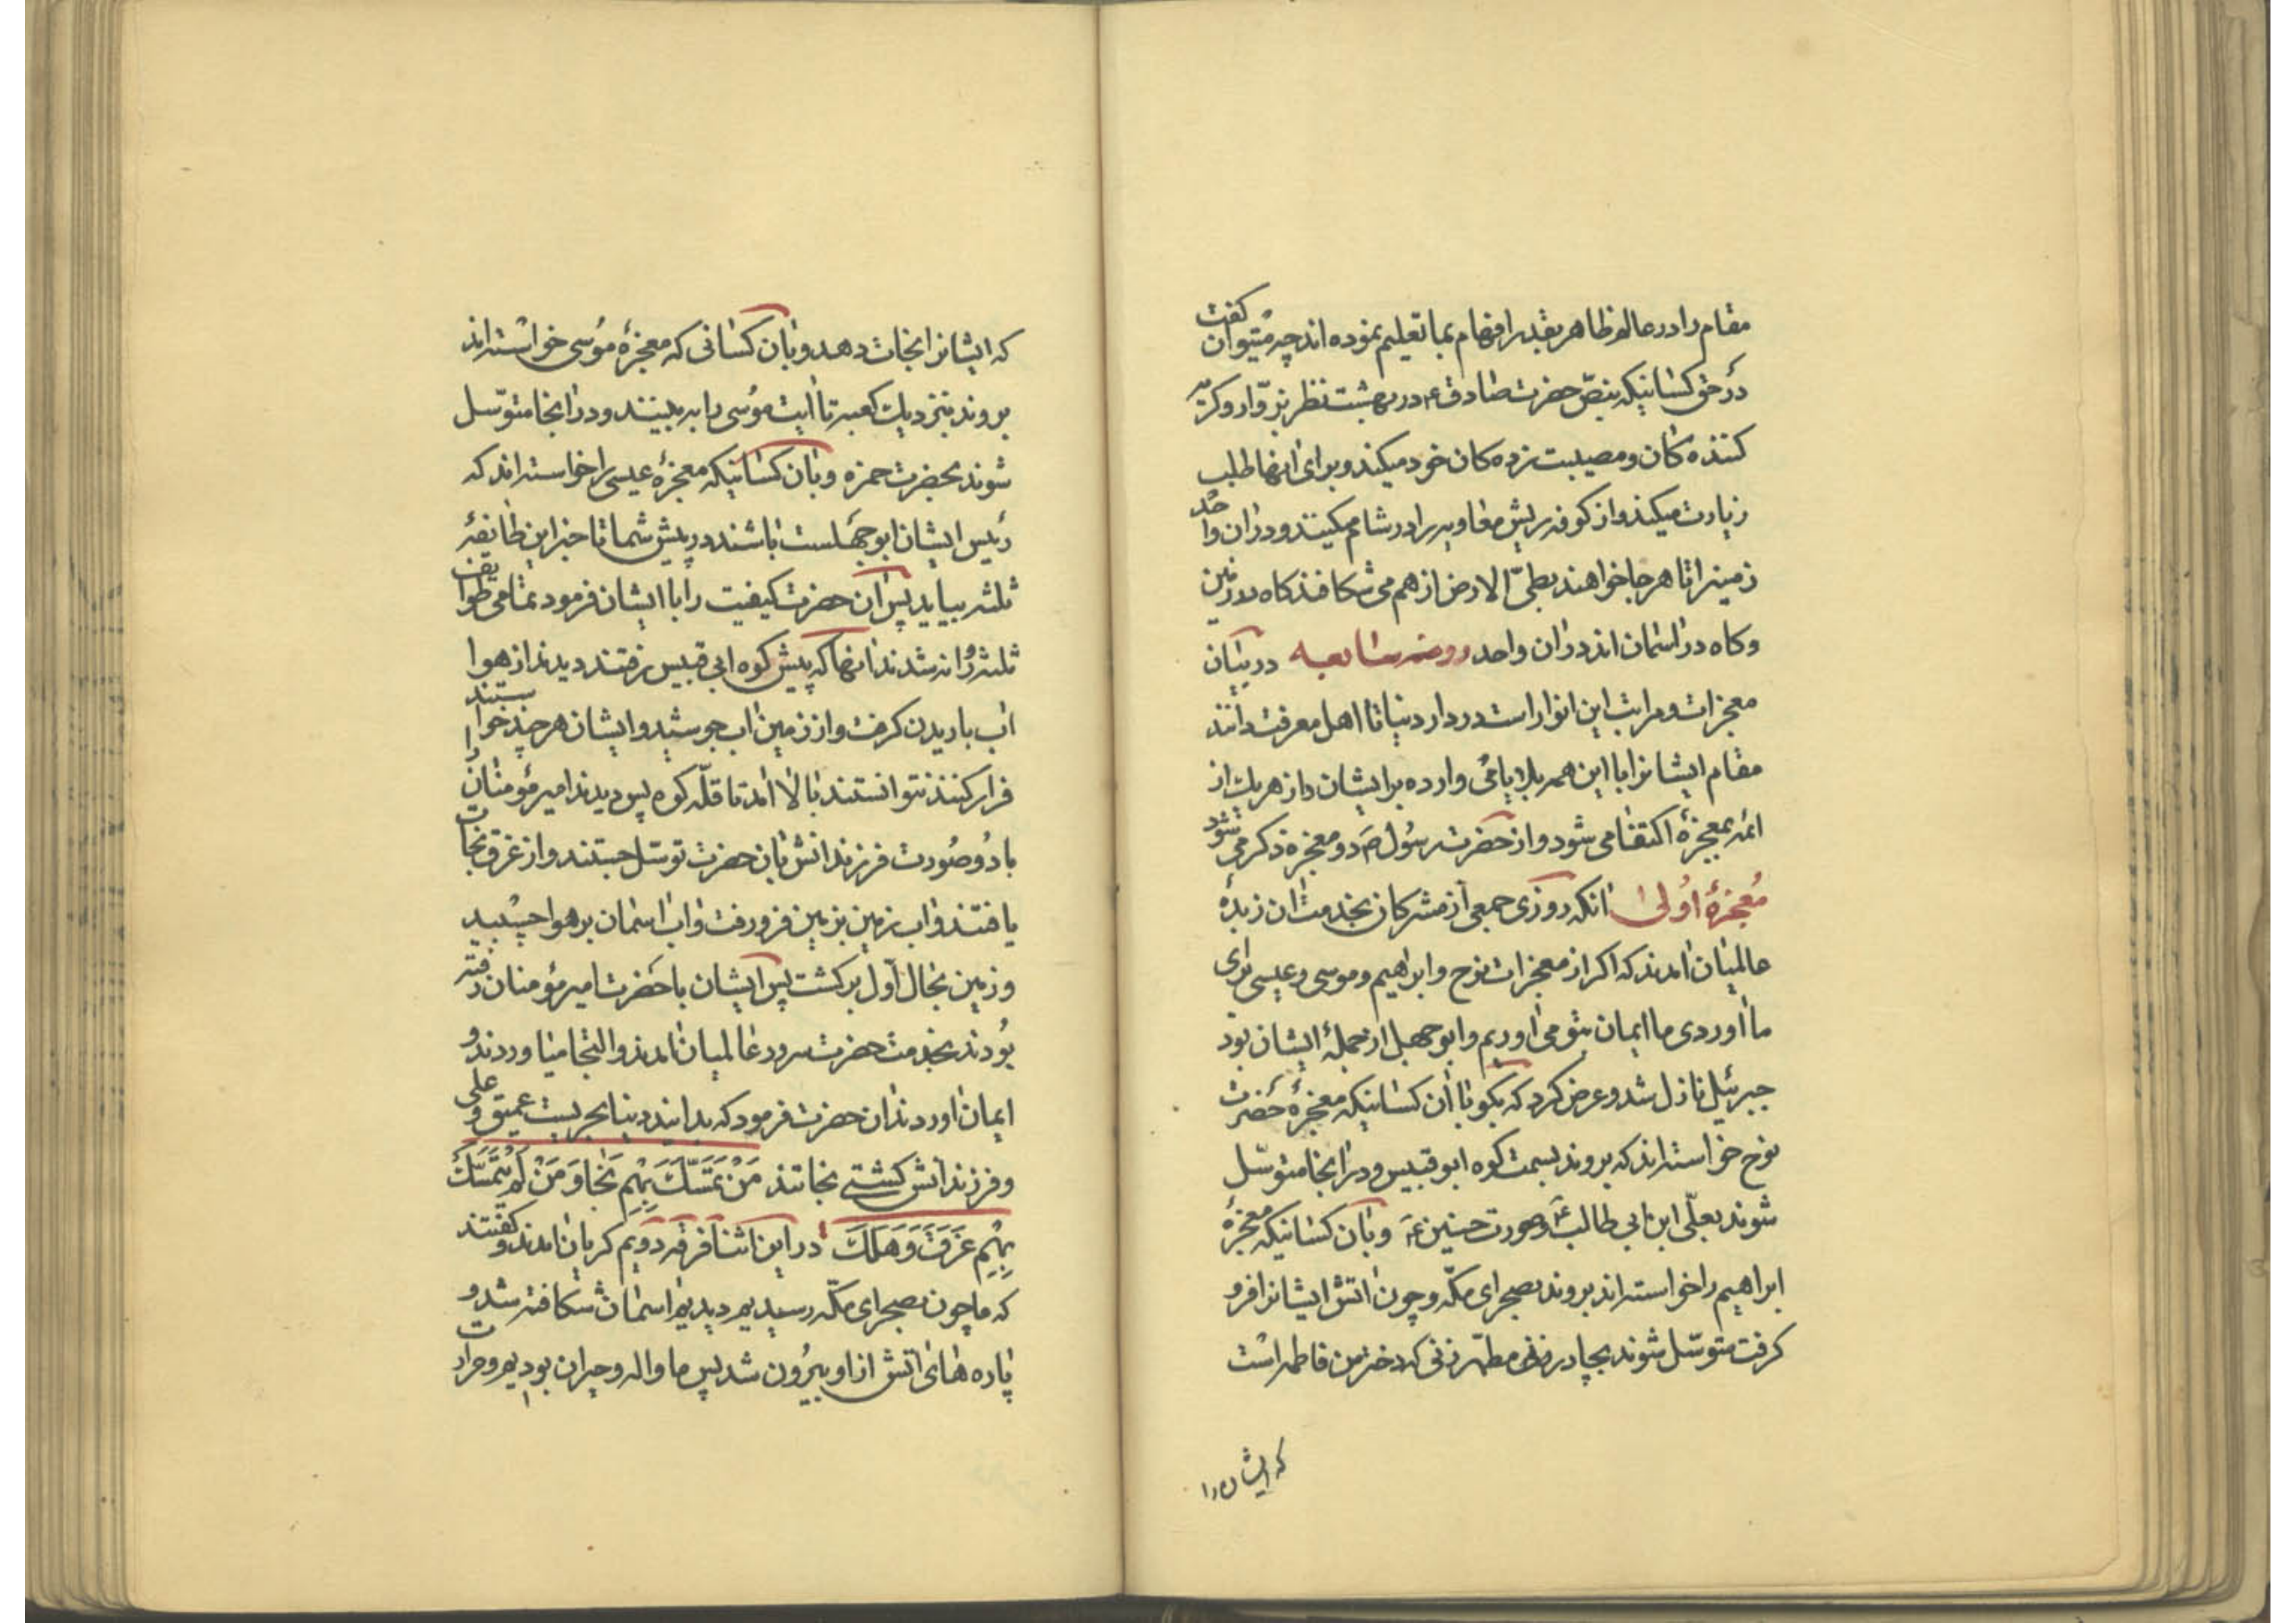 مقام را در عالم ظاهر بقدر افهام بما تعلیم نموده اند چه میتوان گفت
در حق کسانیکه بنص حضرت صادق ع در بهشت نظر بزوار و کریه
کننده کان و مصیبت زده کان خود میکند و برای انها طلب
زیارت میکند و از کوفه ریش معاویه را در شام میکنند و دران واحد
زمینرا تا هر جا خواهند بطیّ الارض از هم می شکافند کاه در زمین
و کاه در اسمان اند دران واحد روضه سابعه در بیان
معجزات و مراتب این انوار است در دار دنیا تا اهل معرفت دانند
مقام ایشانرا با این همه بلایای وارده بر ایشان و از هر یك از
ائمه بمعجزهٔ اکتفا می شود و از حضرت رسول ص دو معجزه ذکر می شود
مُعجزهٔ اُولیٰ انکه روزی جمعی از مشرکان بخدمت ان زبدهٔ
عالمیان امدند که اکر از معجزات نوح و ابراهیم و موسی و عیسی برای
ما اوردی ما ایمان بتو می اوریم و ابو جهل از جملهٔ ایشان بود
جبرئیل نازل شد و عرض کرد که بکو با ان کسانیکه معجزهٔ حضرت
نوح خواسته اند که بروند بسمت کوه ابو قبیس و در انجا متوسّل
شوند بعلّی ابن ابی طالب ع و صورت حسنین ع و بان کسانیکه معجزهٔ
ابراهیم را خواسته اند بروند بصحرای مکّه و چون اتش ایشانرا فرو
کرفت متوسّل شوند بچادر زنی مطهّر زنی که دختر من فاطمه است
که ایشان را
که ایشانرا نجات دهد و بان کسانی که معجزهٔ مُوسی خواسته اند
بروند بنزدیك کعبه تا ایت موُسی را به بینند و در انجا متوّسل
شوند بحضرت حمزه و بان کسانیکه معجزهٔ عیسی را خواسته اند که
رئیس ایشان ابو جهلست باشند در پیش شما تا خبر این طائفهٔ
ثلثه بیاید پس ان حضرت کیفیت را با ایشان فرمود تمامی طوایف
ثلثه روانه شدند انها که پیش کوه ابی قبیس رفتند دیدند از هوا
اب باریدن کرفت و از زمین اب جوشید و ایشان هر چند خواستند
فرار کنند نتوانستند بالا امد تا قلّه کوه پس دیدند امیر مؤمنان را
با دو صُورت فرزندانش بان حضرت توسّل جستند و از غرق نجات
یافتند و اب زمین بزمین فرو رفت و اب اسمان بر هوا چسبید
و زمین بحال اول برکشت پس ایشان با حضرت امیر مؤمنان رفته
بُودند بخدمت حضرت سرور عالمیان امدند و التجا میاوردند و
ایمان اوردند ان حضرت فرمود که بدانید دنیا بحریست عمیق و علی
و فرزندانش کشتی نجاتند مَنْ تَمَسَّكَ بِهِم نَجا وَ مَنْ لَمْ یَتَمَسَّكْ
بِهِم غَرَقَ وَ هَلَكَ در این اثنا فرقه دویم کریان امدند و کفتند
که ما چون بصحرای مکّه رسیدیم دیدیم اسمان شکافته شد و
پاره های اتش از او بیرُون شد پس ما واله و حیران بودیم و حرارت